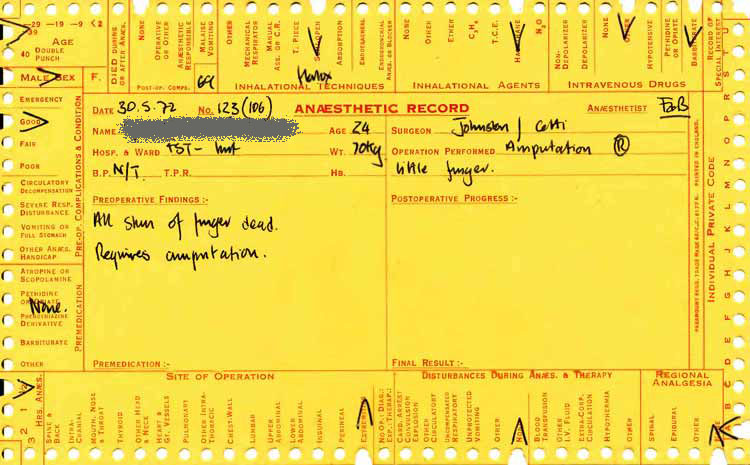 -29 -19 -9 <2
39
AGE
40 DOUBLE
PUNCH
MALE SEX F.
DIED DURING
OR AFTER ANÆS.
NONE
OPERATIVE
OR OTHER
ANÆSTHETIC
RESPONSIBLE
MALAISE
VOMITING
OTHER
POST-OP. COMPS.
MECHANICAL
RESPIRATOR
MANUAL
ASS. OR C.R.
T. PIECE
ABSORPTION
ENDOTRACHEAL
ENDOBRONCHIAL
ANÆS. OR BLOCKER
INHALATIONAL TECHNIQUES
NONE
OTHER
ETHER
C₃H₆
T.C.E.
HALOTHANE
N₂O
INHALATIONAL AGENTS
NON-
DEPOLARIZER
DEPOLARIZER
NONE
OTHER
HYPOTENSIVE
PETHIDINE
OR OPIATE
BARBITURATE
INTRAVENOUS DRUGS
RECORD OF
SPECIAL INTEREST
EMERGENCY
GOOD
FAIR
POOR
CIRCULATORY
DECOMPENSATION
SEVERE RESP.
DISTURBANCE
VOMITING OR
FULL STOMACH
OTHER ANÆS.
HANDICAP
PRE-OP. COMPLICATIONS & CONDITION
ATROPINE OR
SCOPOLAMINE
PETHIDINE
OR OPIATE
None.
PHENOTHIAZINE
DERIVATIVE
BARBITURATE
OTHER
PREMEDICATION
DATE 30.5.72 No. 123(106) ANÆSTHETIC RECORD ANÆSTHETIST FaB
NAME AGE 24 SURGEON Johnston / Cetti
HOSP. & WARD WT. 70Kg OPERATION PERFORMED Amputation R
B.P. N/T T.P.R. HB. little finger.
PREOPERATIVE FINDINGS :- POSTOPERATIVE PROGRESS :-
All skin of finger dead.
Requires amputation.
PREMEDICATION :- FINAL RESULT :-
PRINTED IN ENGLAND.
INDIVIDUAL PRIVATE CODE
3 2 1
HRS. ANÆS.
SITE OF OPERATION
SPINE &
BACK
INTRA-
CRANIAL
MOUTH, NOSE
& THROAT
THYROID
OTHER HEAD
& NECK
HEART &
GT. VESSELS
PULMONARY
OTHER INTRA-
THORACIC
CHEST-WALL
LUMBAR
UPPER
ABDOMINAL
LOWER
ABDOMINAL
INGUINAL
PERINEAL
EXTREMITIES
NO OP. DIAG.:
EXP.:THERAP.:
DISTURBANCES DURING ANÆS. & THERAPY
CARD. ARREST
CONVULSION
EXPLOSION
OTHER
CIRCULATORY
UNCOMPENSATED
RESPIRATORY
UNPROTECTED
VOMITING
OTHER
BLOOD
TRANSFUSION
OTHER
I.V. FLUID
EXTRA-CORP.
CIRCULATION
HYPOTHERMIA
OTHER
REGIONAL
ANALGESIA
SPINAL
EPIDURAL
OTHER